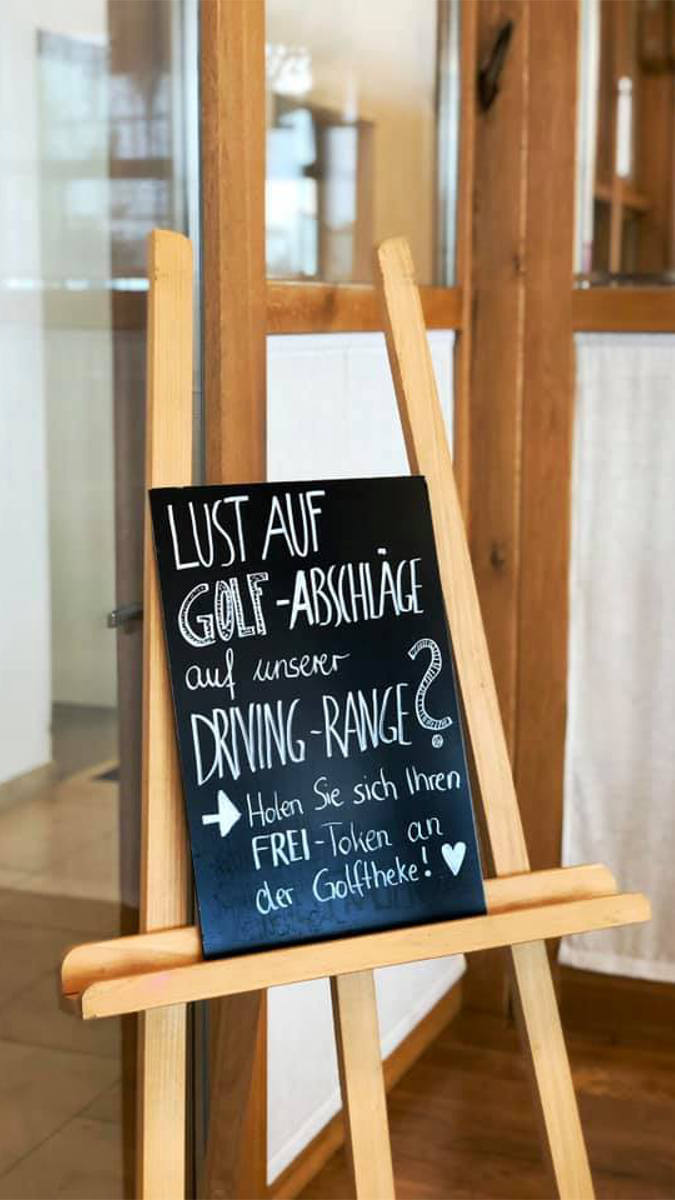 LUST AUF
GOLF-ABSCHLÄGE
auf unserer
DRIVING-RANGE?
Holen Sie sich Ihren
FREI-Token an
der Golftheke!